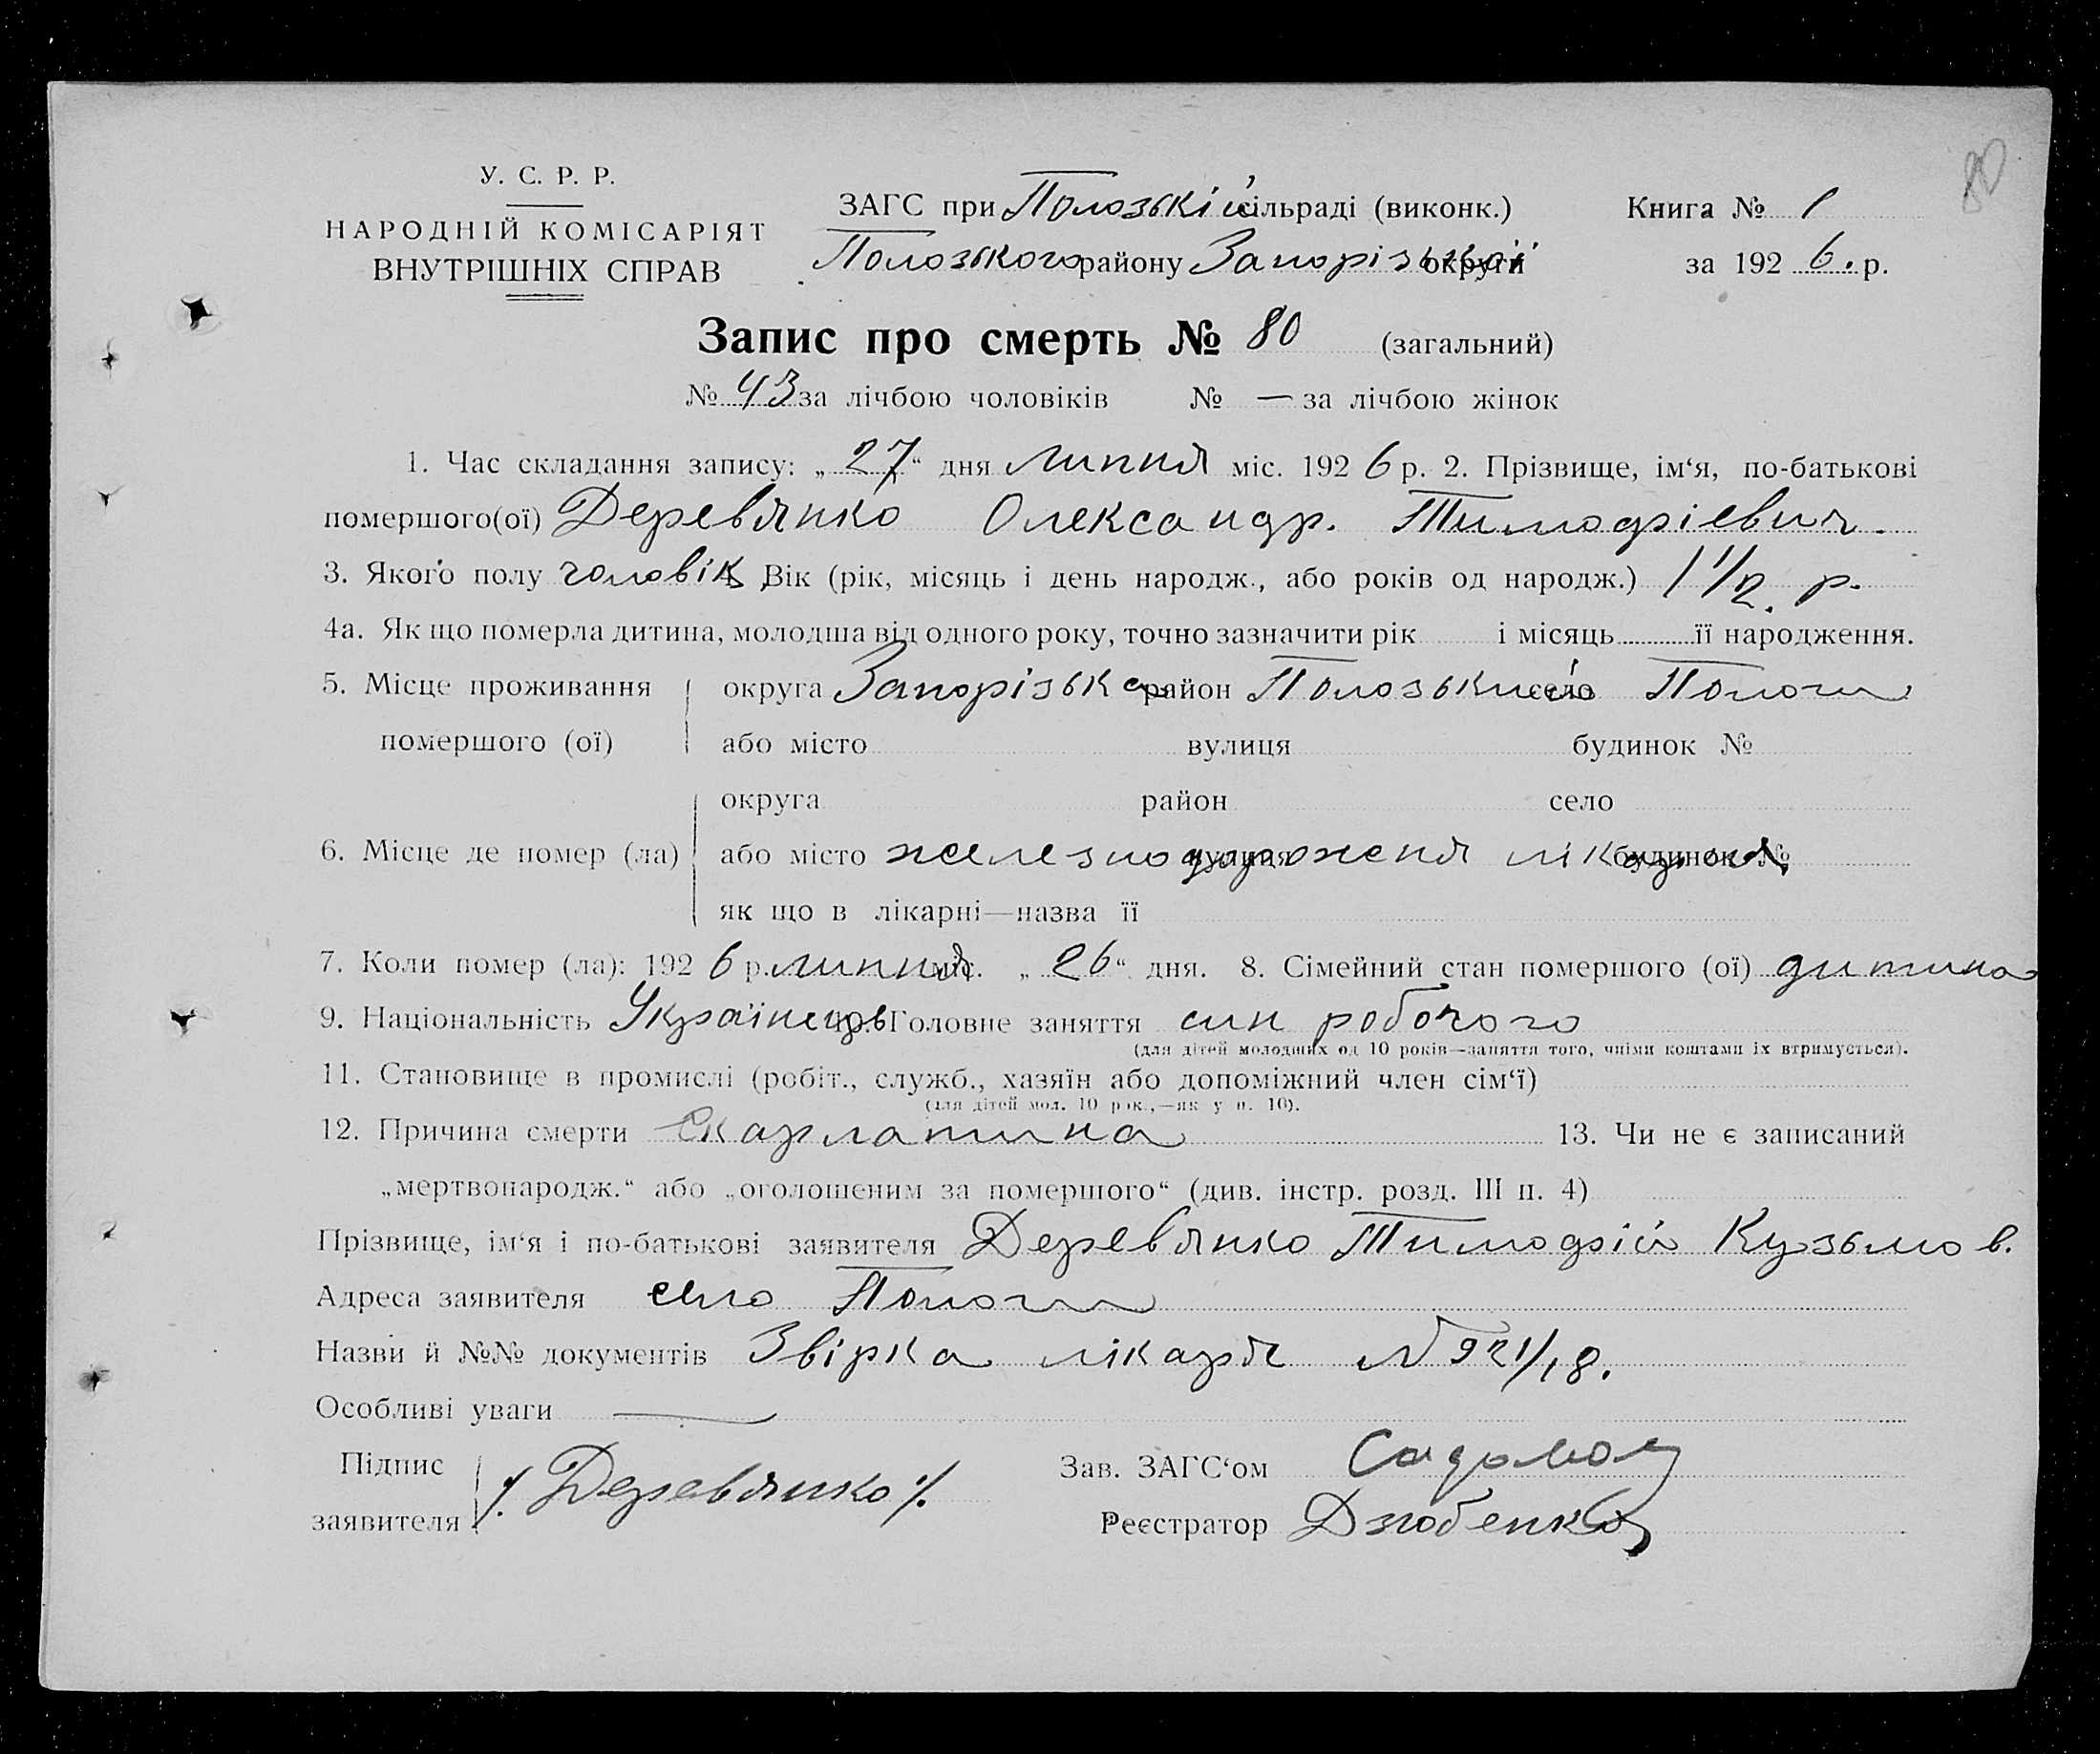 80
У. С. Р. Р.
НАРОДНІЙ КОМІСАРІЯТ
ВНУТРІШНІХ СПРАВ
ЗАГС при Полозькій сільраді (виконк.)
Полозького району Запорізької округи
Книга № 1
за 1926. р.
Запис про смерть № 80 (загальний)
№ 43 за лічбою чоловіків № — за лічбою жінок
1. Час складання запису: „27“ дня липня міс. 1926 р. 2. Прізвище, ім‘я, по-батькові
помершого(ої) Деревянко Олександр. Тимофієвич.
3. Якого полу чоловік 4. Вік (рік, місяць і день народж., або років од народж.) 1 1/2 р.
4а. Як що померла дитина, молодша від одного року, точно зазначити рік і місяць її народження.
5. Місце проживання помершого (ої) округа Запорізька район Полозький село Пологи
або місто вулиця будинок №
округа район село
6. Місце де помер (ла) або місто железнодорожня лікарня вулиця будинок №
як що в лікарні—назва її
7. Коли помер (ла): 1926 р. липня міс. „26“ дня. 8. Сімейний стан помершого (ої) дитина
9. Національність Українець 10. Головне заняття син робочого
(для дітей молодших од 10 років—заняття того, чиїми коштами їх втримується).
11. Становище в промислі (робіт., служб., хазяїн або допоміжний член сім‘ї)
(для дітей мол. 10 рок.,—як у п. 10).
12. Причина смерти Скарлатина 13. Чи не є записаний
„мертвонародж.“ або „оголошеним за помершого“ (див. інстр. розд. III п. 4)
Прізвище, ім‘я і по-батькові заявителя Деревянко Тимофій Кузьмов.
Адреса заявителя село Пологи
Назви й №№ документів Звірка лікаря № 921/18.
Особливі уваги —
Підпис заявителя /. Деревянко /.
Зав. ЗАГС‘ом
Реєстратор Дзюбенко